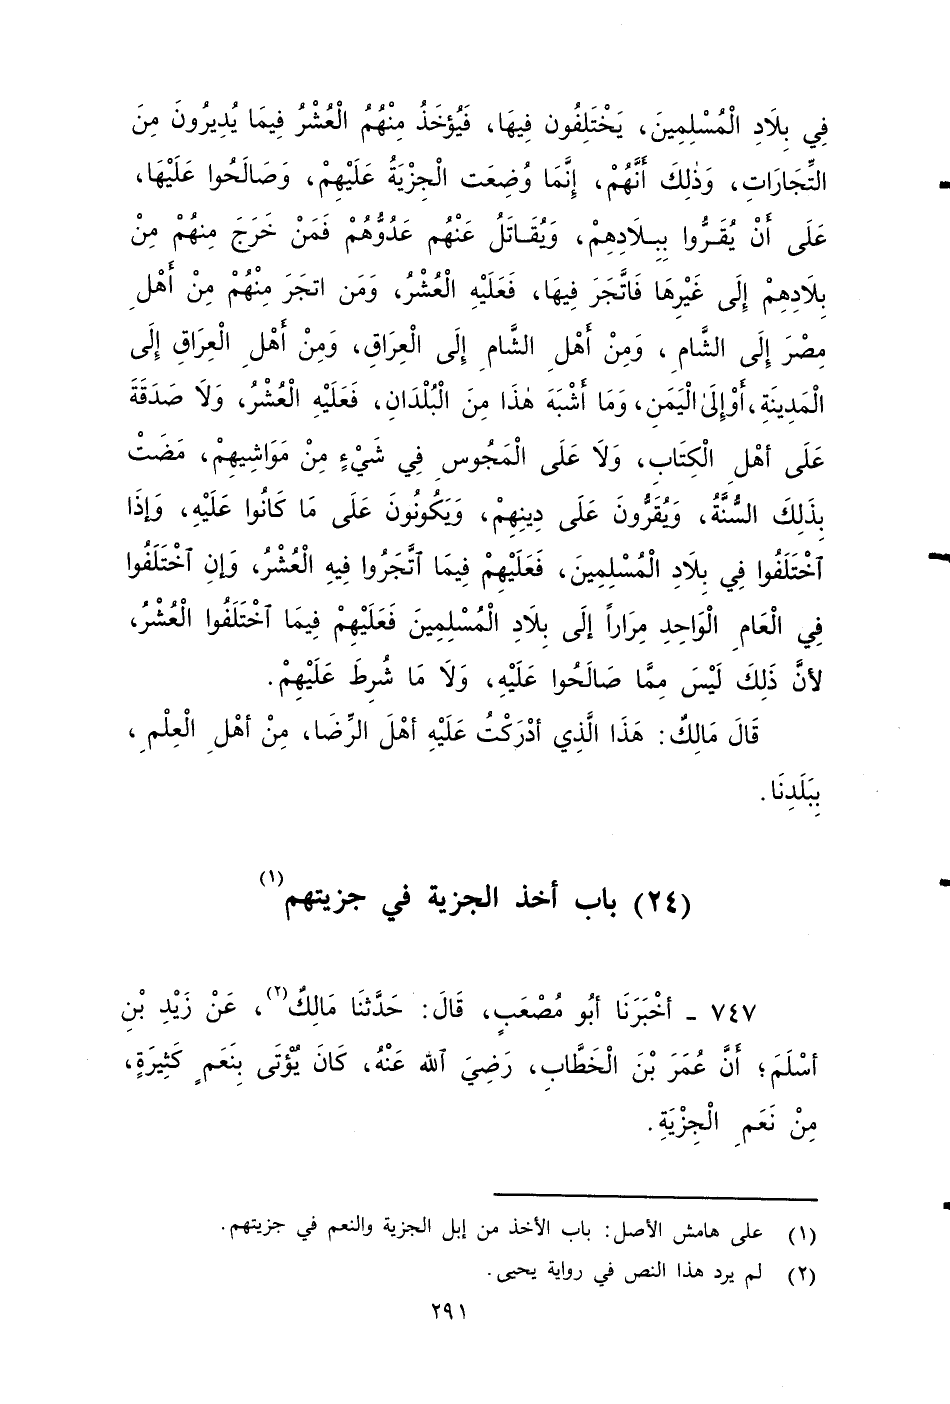 فِي بِلَادِ الْمُسْلِمِينَ، يَخْتَلِفُون فِيهَا، فَيُؤْخَذُ مِنْهُمُ الْعُشْرُ فِيمَا يُدِيرُونَ مِنَ
التِّجَارَاتِ، وَذٰلِكَ أَنَّهُمْ، إِنَّمَا وُضِعَت الْجِزْيَةُ عَلَيْهِمْ، وَصَالَحُوا عَلَيْهَا،
عَلَى أَنْ يُقَرُّوا بِبِلَادِهِمْ، وَيُقَاتَلُ عَنْهُم عَدُوُّهُمْ فَمَنْ خَرَجَ مِنهُمْ مِنْ
بِلَادِهِمْ إِلَى غَيْرِهَا فَاتَّجَرَ فِيهَا، فَعَلَيْهِ الْعُشْرُ، وَمَن اتجَرَ مِنْهُمْ مِنْ أَهْلِ
مِصْرَ إِلَى الشَّامِ، وَمِنْ أَهْلِ الشَّامِ إِلَى الْعِرَاقِ، وَمِنْ أَهْلِ الْعِرَاقِ إِلَى
الْمَدِينَةِ، أَوْ إِلىٰ الْيَمَنِ، وَمَا أَشْبَهَ هٰذَا مِنَ الْبُلْدَانِ، فَعَلَيْهِ الْعُشْرُ، وَلَا صَدَقَةَ
عَلَى أهْلِ الْكِتَابِ، وَلَا عَلَى الْمَجُوسِ فِي شَيْءٍ مِنْ مَوَاشِيهِمْ، مَضَتْ
بِذَلِكَ السُّنَّةُ، وَيُقَرُّونَ عَلَى دِينِهِمْ، وَيَكُونُونَ عَلَى مَا كَانُوا عَلَيْهِ، وَإِذَا
ٱخْتَلَفُوا فِي بِلَادِ الْمُسْلِمِينَ، فَعَلَيْهِمْ فِيمَا ٱتَّجَرُوا فِيهِ الْعُشْرُ، وَإِنِ ٱخْتَلَفُوا
فِي الْعَامِ الْوَاحِدِ مِرَاراً إِلَى بِلَادِ الْمُسْلِمِينَ فَعَلَيْهِمْ فِيمَا ٱخْتَلَفُوا الْعُشْرُ،
لأنَّ ذَلِكَ لَيْسَ مِمَّا صَالَحُوا عَلَيْهِ، وَلَا مَا شُرِطَ عَلَيْهِمْ.
قَالَ مَالِكٌ: هَذَا الَّذِي أدْرَكْتُ عَلَيْهِ أهْلَ الرِّضَا، مِنْ أهلِ الْعِلْمِ،
بِبَلَدِنَا.
(٢٤) باب أخذ الجزية في جزيتهم(١)
٧٤٧ - أخْبَرَنَا أبُو مُصْعَبٍ، قَالَ: حَدَّثنَا مَالِكٌ(٢)، عَنْ زَيْدِ بْنِ
أسْلَمَ؛ أنَّ عُمَرَ بْنَ الْخَطَّابِ، رَضِيَ ٱلله عَنْهُ، كَانَ يُؤْتَى بِنَعَمٍ كَثِيرَةٍ،
مِنْ نَعَمِ الْجِزْيَةِ.
(١) على هامش الأصل: باب الأخذ من إبل الجزية والنعم في جزيتهم.
(٢) لم يرد هذا النص في رواية يحيى.
٢٩١